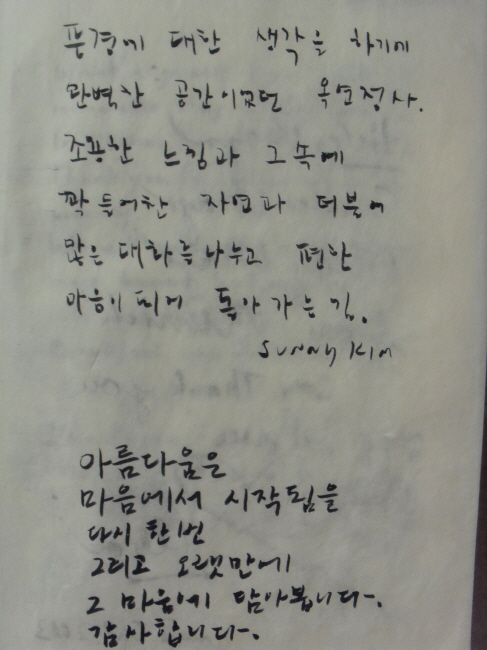 풍경에 대한 생각을 하기에
완벽한 공간이였던 옥연정사.
조용한 느낌과 그 속에
꽉 들어찬 자연과 더불어
많은 대화를 나누고 편한
마음이 되어 돌아가는 길.
Sunny Kim
아름다움은
마음에서 시작됨을
다시 한번
그리고 오랫만에
그 마음에 담아봅니다.
감사합니다.